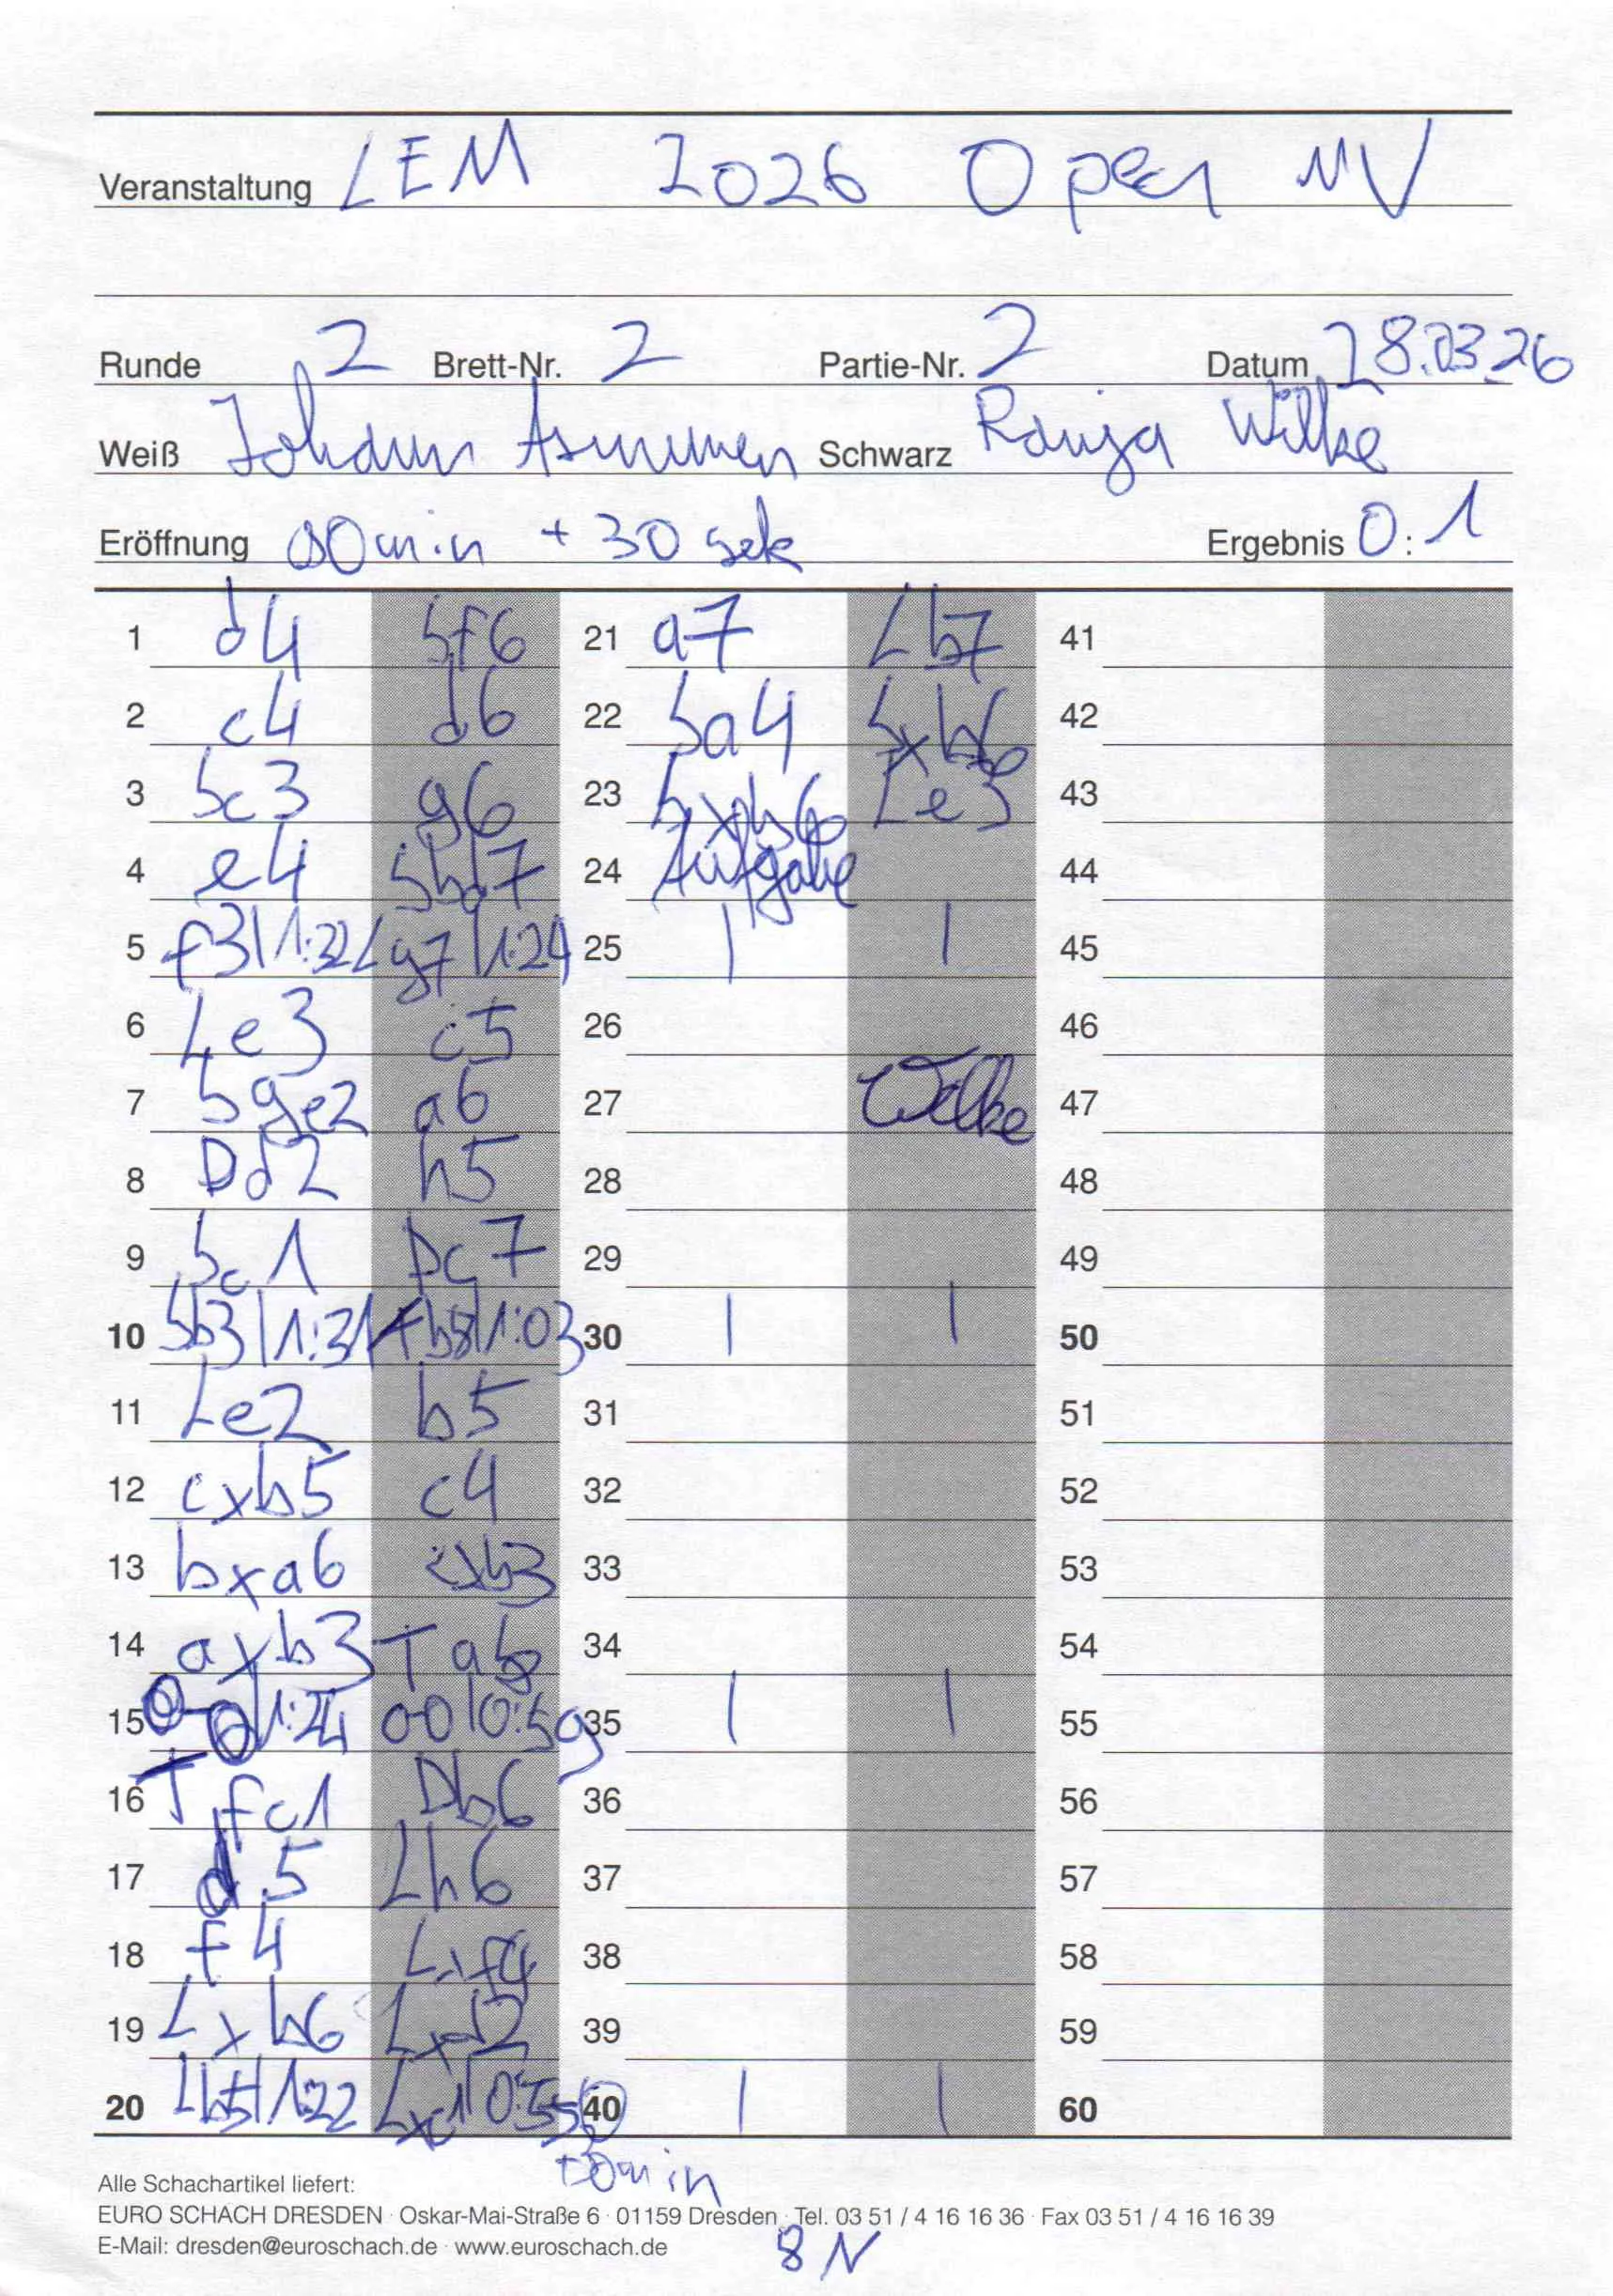 Veranstaltung LEM 2026 Open MV
Runde 2 Brett-Nr. 2 Partie-Nr. 2 Datum 28.03.26
Weiß Johann Asmussen Schwarz Ranja Wilke
Eröffnung 90min + 30 sek Ergebnis 0:1
1 d4 Sf6 21 a7 Lb7 41
2 c4 d6 22 Sa4 Sxb6 42
3 Sc3 g6 23 Sxb6 Le3 43
4 e4 Sbd7 24 Aufgabe 44
5 f3|1:32 Lg7|1:24 25 | | 45
6 Le3 c5 26 46
7 Sge2 a6 27 Wilke 47
8 Dd2 h5 28 48
9 Sc1 Dc7 29 49
10 Sb3|1:31 Tb8|1:03 30 | | 50
11 Le2 b5 31 51
12 cxb5 c4 32 52
13 bxa6 cxb3 33 53
14 axb3 Ta8 34 54
15 0-0|1:24 00|0:59 35 | | 55
16 Tfc1 Db6 36 56
17 d5 Lh6 37 57
18 f4 Lxf4 38 58
19 Lxb6 Lxd2 39 59
20 Lb5|1:22 Lxc1|0:55 40 | | 60
+30min
Alle Schachartikel liefert:
EURO SCHACH DRESDEN · Oskar-Mai-Straße 6 · 01159 Dresden · Tel. 03 51 / 4 16 16 36 · Fax 03 51 / 4 16 16 39
E-Mail: dresden@euroschach.de · www.euroschach.de
8 N